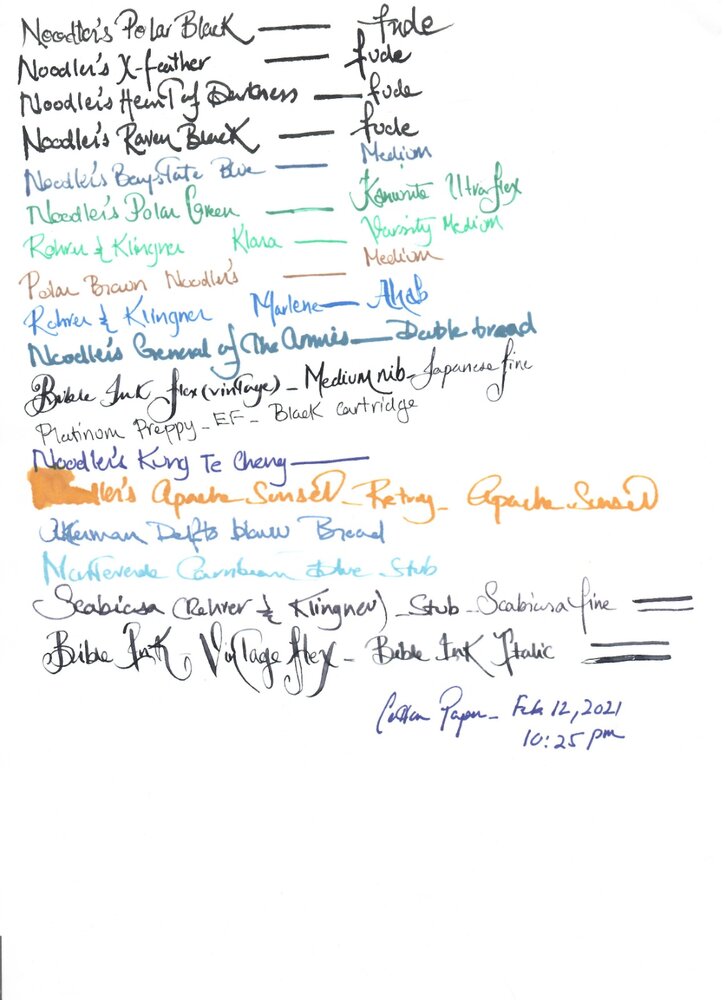 Noodler's Polar Black — fude
Noodler's X-feather — fude
Noodler's Heart of Darkness — fude
Noodler's Raven Black — fude
Noodler's Bay State Blue — Medium
Noodler's Polar Green — Kanwrite Ultraflex
Rohrer & Klingner Klara — Varsity Medium
Polar Brown Noodler's — Medium
Rohrer & Klingner Marlene — Ahab
Noodler's General of The Armies — Double broad
Bible Ink flex (vintage) - Medium nib - Japanese fine
Platinum Preppy - EF - Black cartridge
Noodler's Kung Te Cheng —
ler's Apache Sunset - Retray - Apache Sunset
Akkerman Delfts blauw Broad
Monteverde Caribbean Blue - Stub
Scabiosa (Rohrer & Klingner) - Stub - Scabiosa fine
Bible Ink, Vintage flex - Bible Ink Italic
Cotton Paper - Feb 12, 2021
10:25 pm